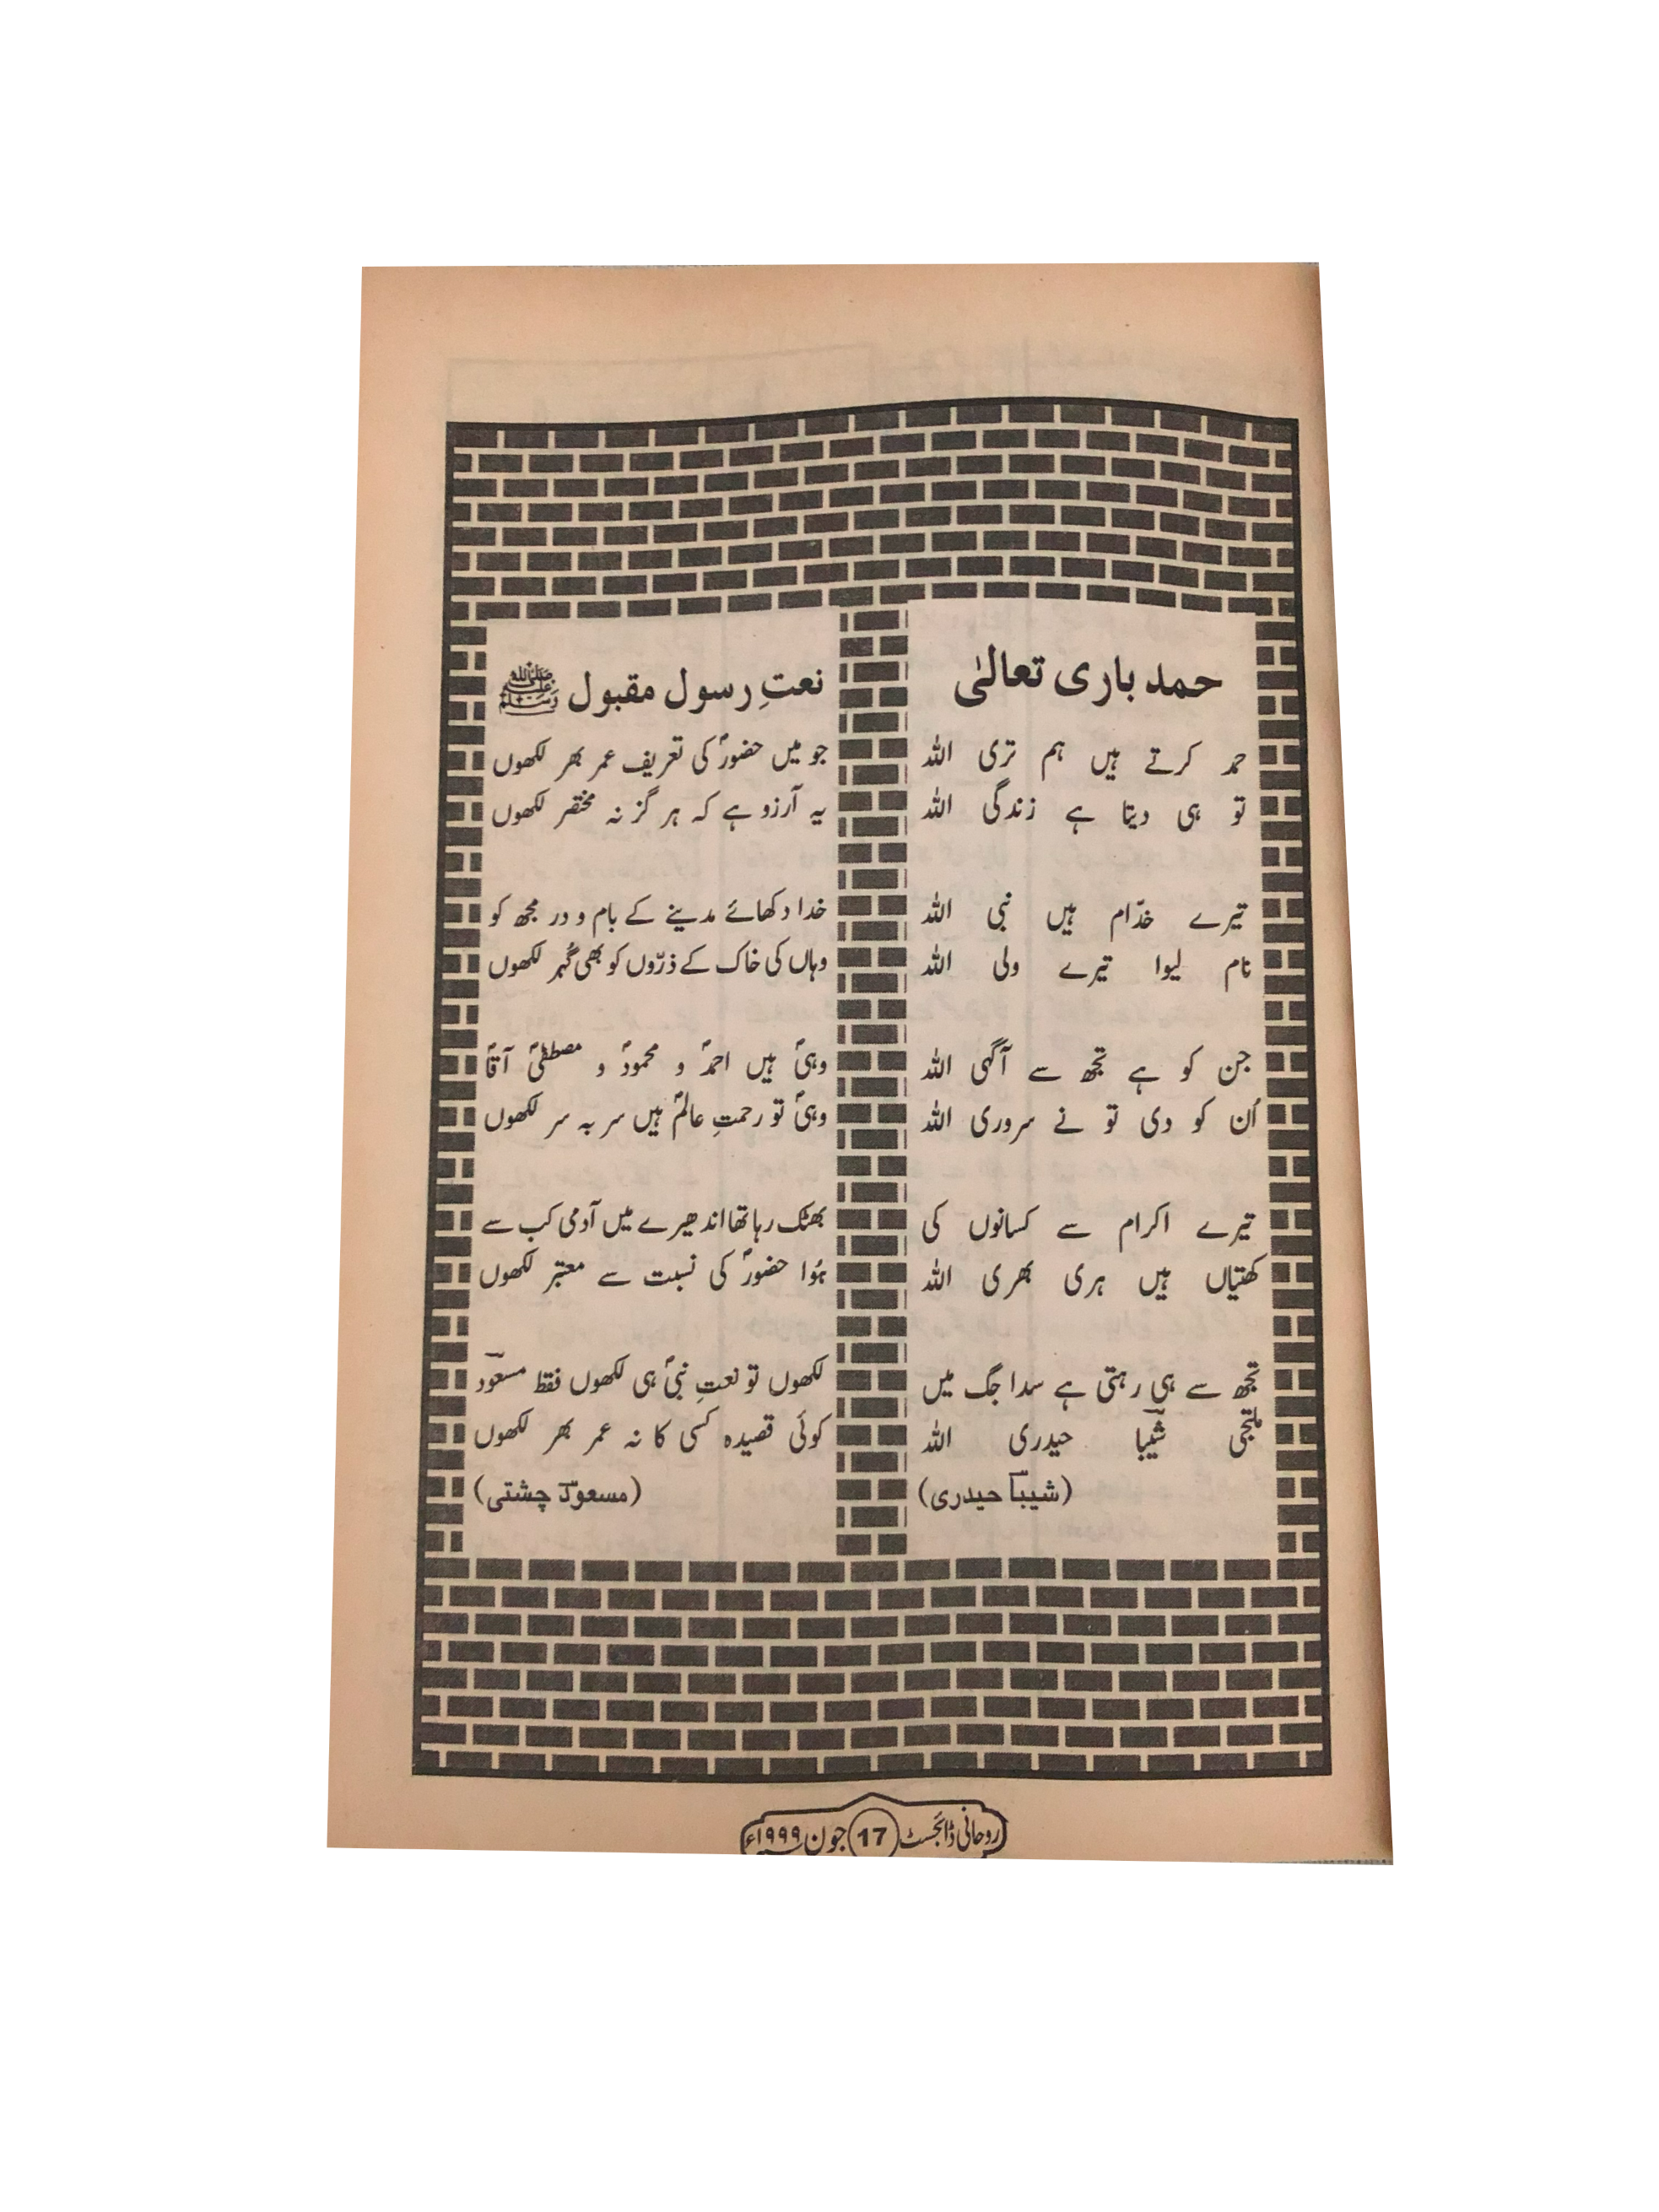 حمد باری تعالیٰ
حمد کرتے ہیں ہم تری اللہ
تو ہی دیتا ہے زندگی اللہ
تیرے خدّام ہیں نبی اللہ
نام لیوا تیرے ولی اللہ
جن کو ہے تجھ سے آگہی اللہ
اُن کو دی تو نے سروری اللہ
تیرے اکرام سے کسانوں کی
کھتیاں ہیں ہری بھری اللہ
تجھ سے ہی رہتی ہے سدا جگ میں
ملتجی شیبا حیدری اللہ
(شیبا حیدری)
نعتِ رسول مقبول ﷺ
جو میں حضورؐ کی تعریف عمر بھر لکھوں
یہ آرزو ہے کہ ہر گز نہ مختصر لکھوں
خدا دکھائے مدینے کے بام و در مجھ کو
وہاں کی خاک کے ذرّوں کو بھی گُہر لکھوں
وہیؐ ہیں احمدؐ و محمودؐ و مصطفیٰؐ آقاؐ
وہیؐ تو رحمتِ عالمؐ ہیں سر بہ سر لکھوں
بھٹک رہا تھا اندھیرے میں آدمی کب سے
ہُوا حضورؐ کی نسبت سے معتبر لکھوں
لکھوں تو نعتِ نبیؐ ہی لکھوں فقط مسعودؔ
کوئی قصیدہ کسی کا نہ عمر بھر لکھوں
(مسعودؔ چشتی)
روحانی ڈائجسٹ 17 جون ۱۹۹۹ء